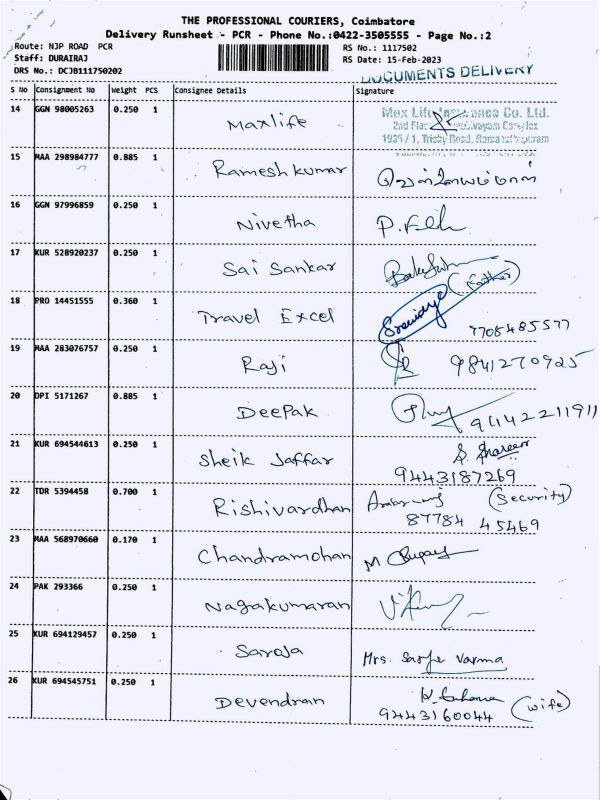 THE PROFESSIONAL COURIERS, Coimbatore
Delivery Runsheet - PCR - Phone No.:0422-3505555 - Page No.:2
Route: NJP ROAD PCR RS No.: 1117502
Staff: DURAIRAJ RS Date: 15-Feb-2023
DRS No.: DCJB111750202
DOCUMENTS DELIVERY
S No Consignment No Weight PCS Consignee Details Signature
14 GGN 98005263 0.250 1 Maxlife Max Life Insurance Co. Ltd.
2nd
1055 / 1, Trichy Road, Ramanathapuram
15 MAA 298984777 0.885 1 Ramesh kumar
16 GGN 97996859 0.250 1 Nivetha
17 KUR 528920237 0.250 1 Sai Sankar (Father)
18 PRO 14451555 0.360 1 Travel Excel 7708485577
19 MAA 283076757 0.250 1 Raji 9841270925
20 DPI 5171267 0.885 1 Deepak
21 KUR 694544613 0.250 1 Sheik Jaffar
9443187269
22 TDR 5394458 0.700 1 Rishivardhan (Security)
87784 45469
23 MAA 568970660 0.170 1 Chandramohan
24 PAK 293366 0.250 1 Nagakumaran
25 KUR 694129457 0.250 1 Saroja Mrs. Varma
26 KUR 694545751 0.250 1 Devendran (wife)
9443160044